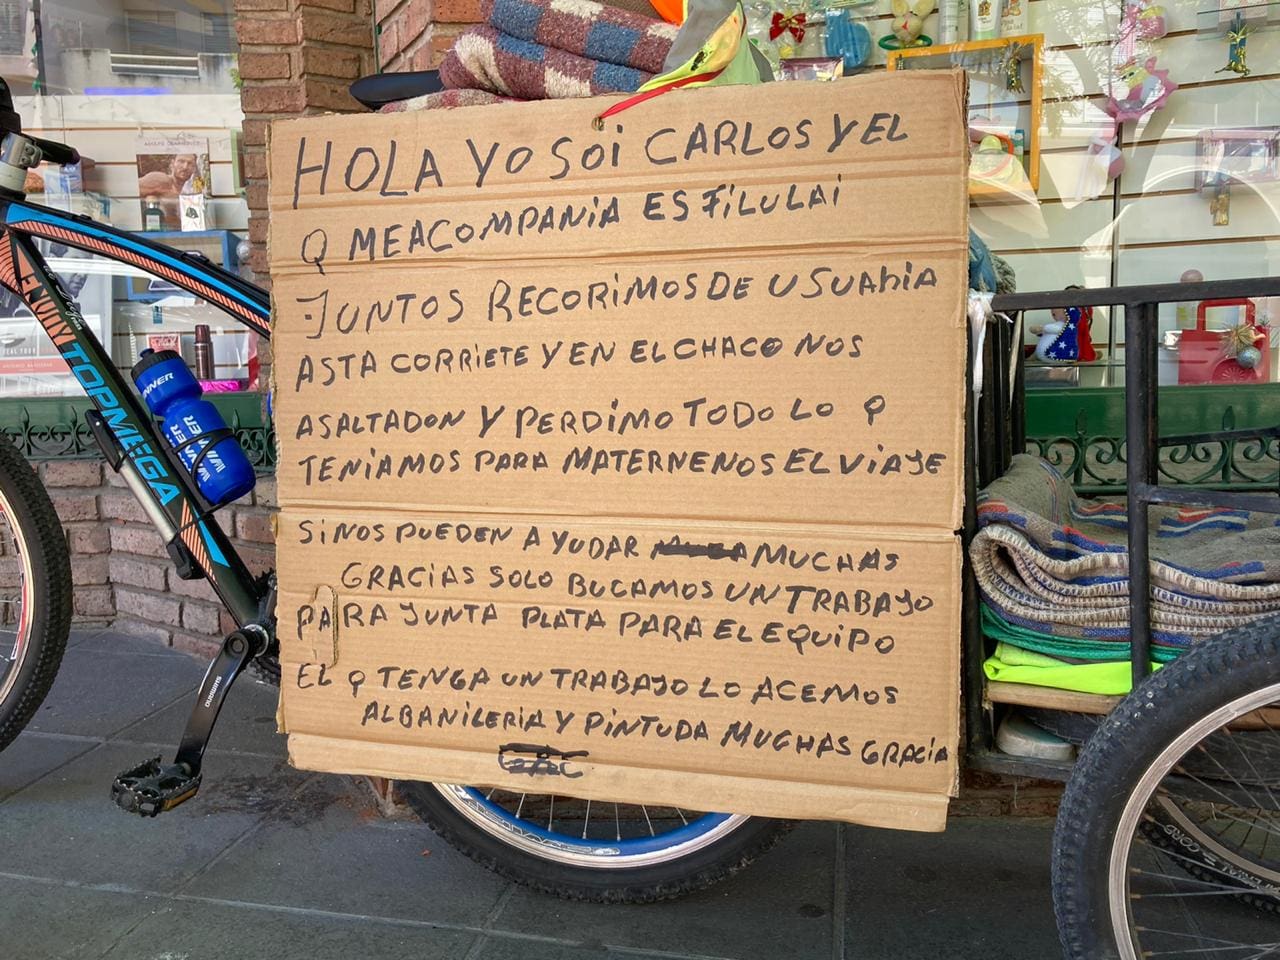 HOLA YO SOi CARLOS Y EL
Q ME ACOMPANiA ES FiLULAi
JUNTOS RECORiMOS DE USUAhiA
ASTA CORRiETE Y EN EL CHACO NOS
ASALTADON Y PERDiMO TODO LO Q
TENiAMOS PARA MATERNENOS EL ViAJE
Si NOS PUEDEN AYUDAR MUCHAS
GRACiAS SOLO BUCAMOS UN TRABAJO
PARA JUNTA PLATA PARA EL EQUiPO
EL Q TENGA UN TRABAJO LO ACEMOS
ALBANiLERiA Y PiNTUDA MUCHAS GRACiA
ENJOY
TOPMEGA
WINNER
WINNER
WINNER
SHIMANO